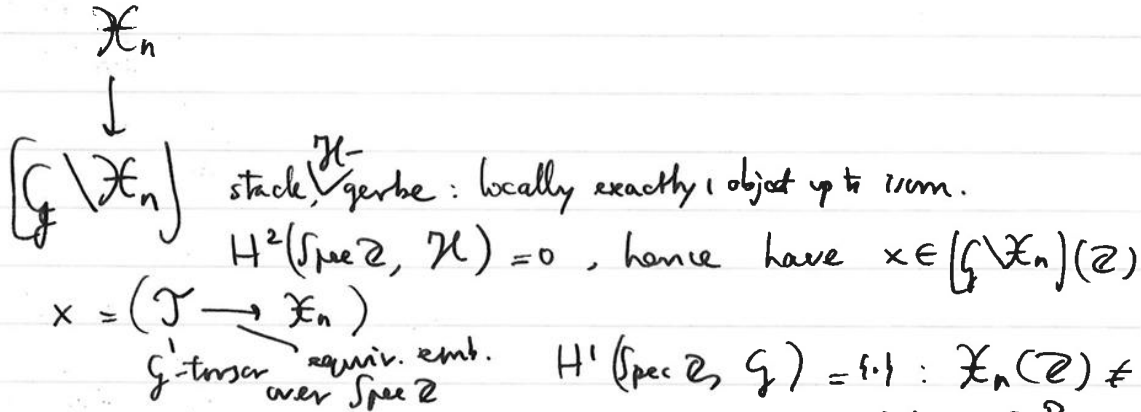 𝒳ₙ
↓
[𝒢\𝒳ₙ] stack, ℋ-gerbe : locally exactly 1 object up to isom.
H²(Spec ℤ, ℋ) = 0 , hence have x ∈ [𝒢\𝒳ₙ](ℤ)
x = (𝒯 ⟶ 𝒳ₙ)
𝒢-torsor equiv. emb. H¹(Spec ℤ, 𝒢) = {·} : 𝒳ₙ(ℤ) ≠
over Spec ℤ